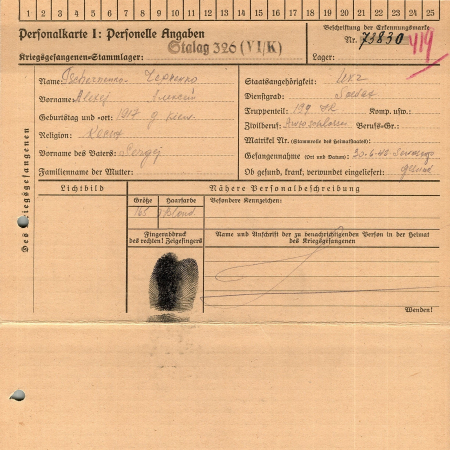 1 2 3 4 5 6 7 8 9 10 11 12 13 14 15 16 17 18 19 20 21 22 23 24 25
Personalkarte I: Personelle Angaben
Beschriftung der Erkennungsmarke
Nr. 73830
Kriegsgefangenen-Stammlager: Stalag 326 (VI/K)
Lager:
Des Kriegsgefangenen
Name:
Vorname: Alexej Алексей
Geburtstag und -ort: 1917
Religion:
Vorname des Vaters: Sergej
Familienname der Mutter:
Staatsangehörigkeit: Ukr
Dienstgrad: Soldat
Truppenteil: Komp. usw.:
Zivilberuf: Berufs-Gr.:
Matrikel Nr. (Stammrolle des Heimatstaates):
Gefangennahme (Ort und Datum):
Ob gesund, krank, verwundet eingeliefert: gesund
Lichtbild
Nähere Personalbeschreibung
Größe Haarfarbe
165 Blond
Besondere Kennzeichen:
Fingerabdruck
des rechten! Zeigefingers
Name und Anschrift der zu benachrichtigenden Person in der Heimat
des Kriegsgefangenen
Wenden!